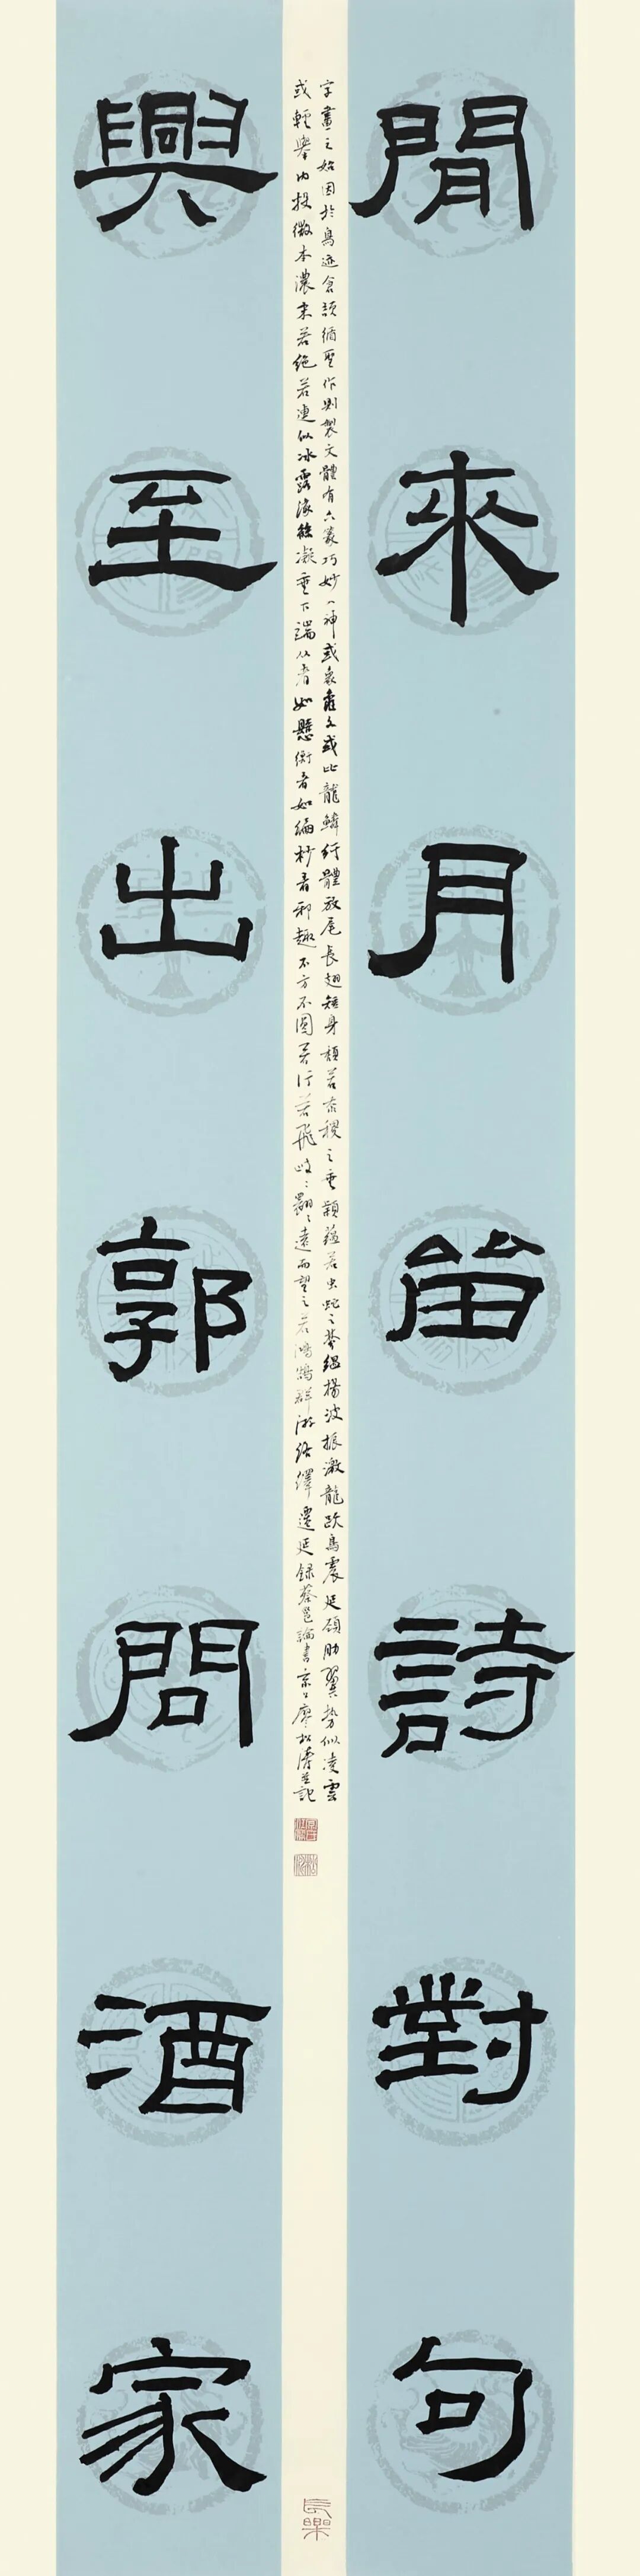 閒來月留詩對句
興至出郭問酒家
字畫之始因於鳥迹倉頡循聖作則製文體有六篆巧妙入神或象龜文或比龍鱗紆體放尾長翅短身頹若黍稷之垂穎蘊若虫蛇之棼緼揚波振激龍躍鳥震延頸脅翼勢似凌雲
或輕舉內投微本濃末若絕若連似冰露緣絲凝垂下端從者如懸衡者如編杪者邪趣不方不圓若行若飛岐〻翾〻遠而望之若鴻鵠群游絡繹遷延錄蔡邕論書廖松濤並記
長樂